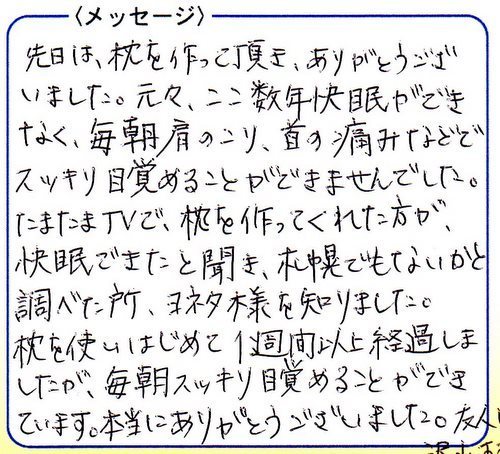 〈メッセージ〉
先日は、枕を作って頂き、ありがとうござ
いました。元々、ここ数年快眠ができ
なく、毎朝肩のこり、首の痛みなどで
スッキリ目覚めることができませんでした。
たまたまTVで、枕を作ってくれた方が、
快眠できたと聞き、札幌でもないかと
調べた所、ヨネタ様を知りました。
枕を使いはじめて1週間以上経過しま
したが、毎朝スッキリ目覚めることができ
ています。本当にありがとうございました。友人